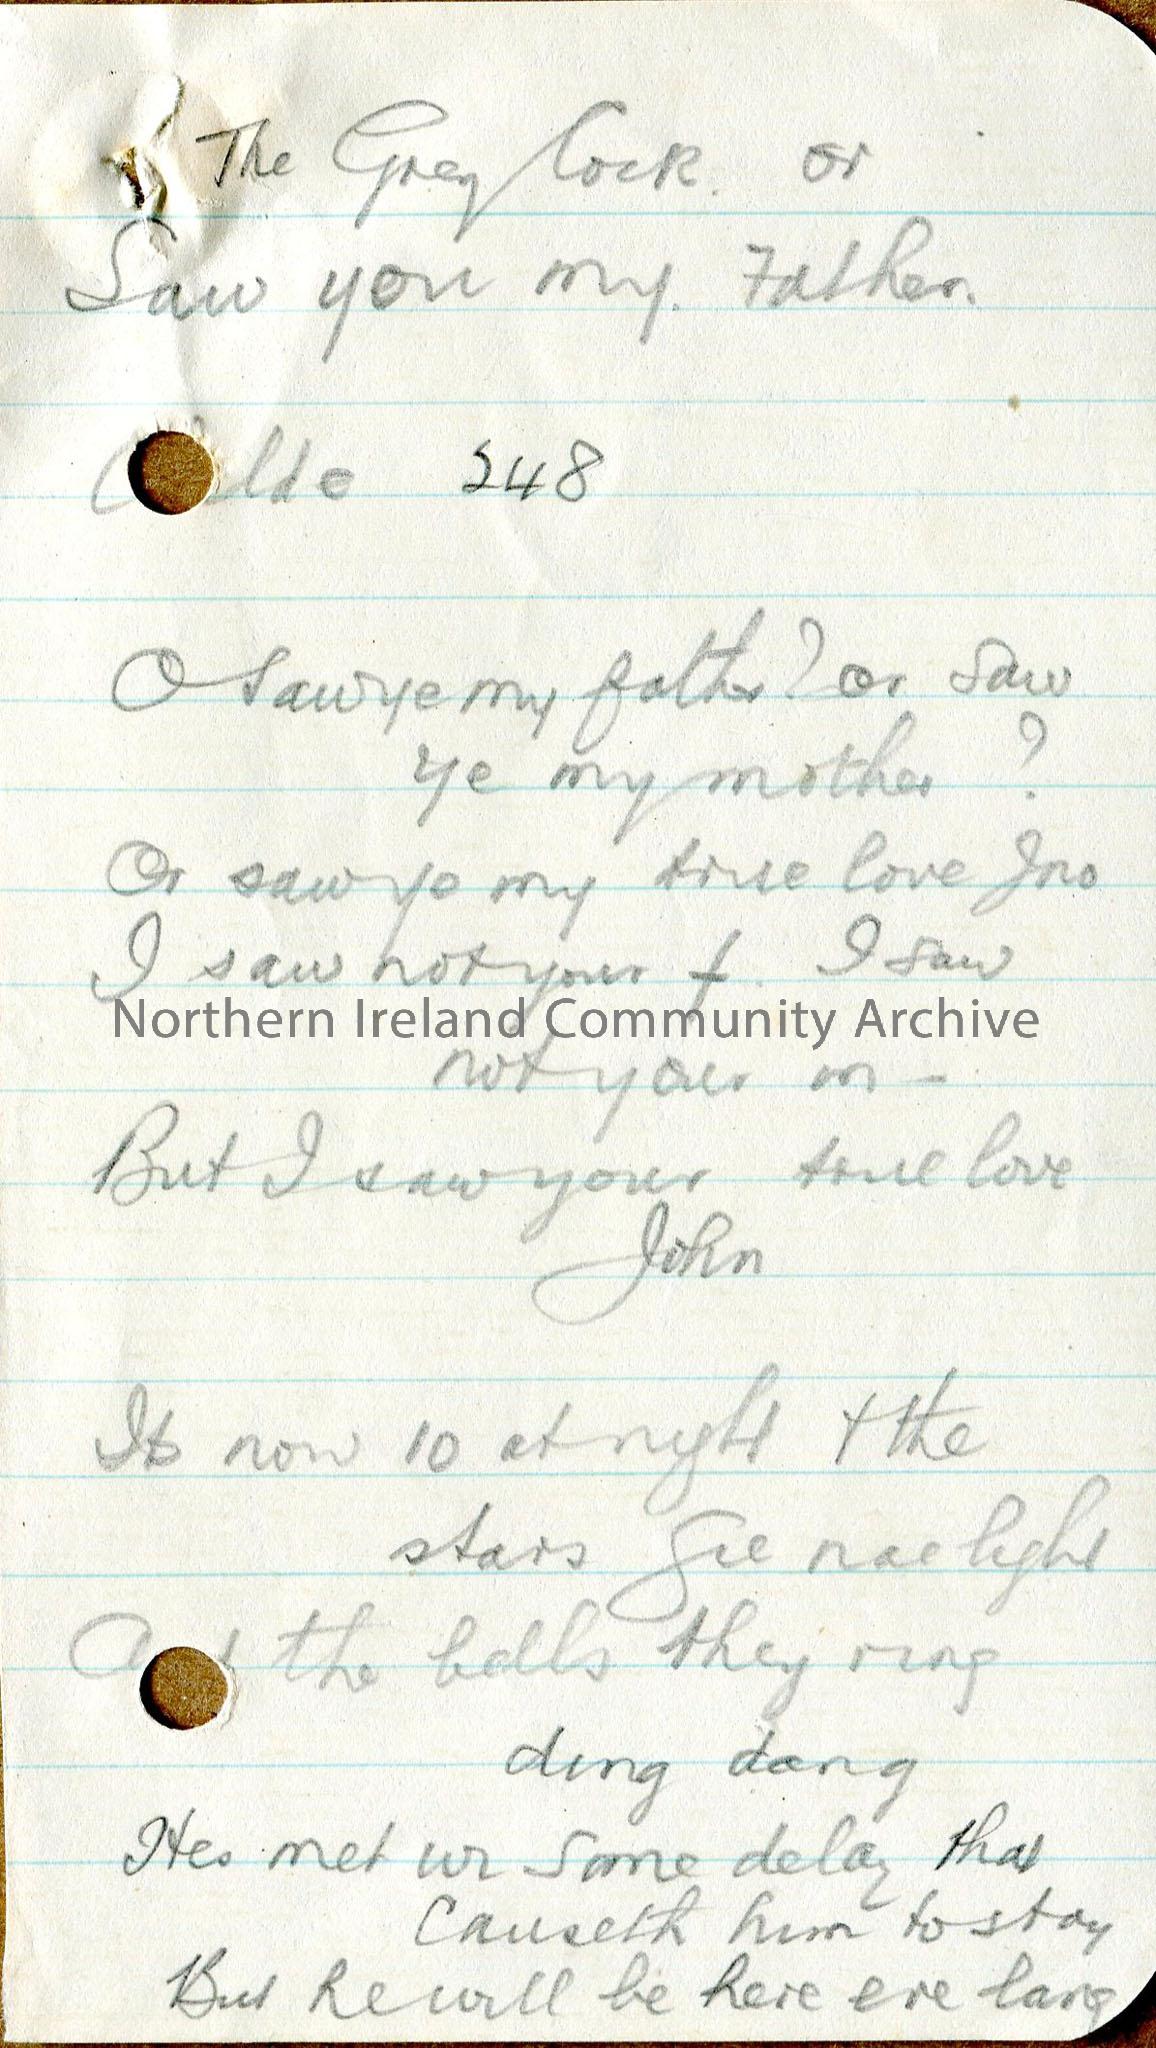 The Grey Cock. or
Saw you my Father.
248
O saw ye my father? or saw
ye my mother?
Or saw ye my true love Jno
I saw not your f. I saw
Northern Ireland Community Archive
not your m -
But I saw your true love
John
Its now 10 at night & the
stars gie nae light
the bells they ring
ding dang
Hes met wi some delay that
causeth him to stay
But he will be here ere lang